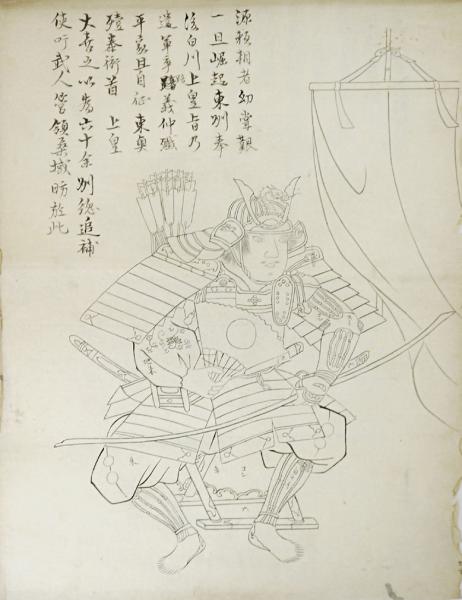 源頼朝者幼
一旦崛起東州奉
後白川上皇旨乃
遣軍義仲殲
平家且自征東奥
殪泰衡首 上皇
大喜之以為六十余州総追補
使吁武人管領桑域昉於此